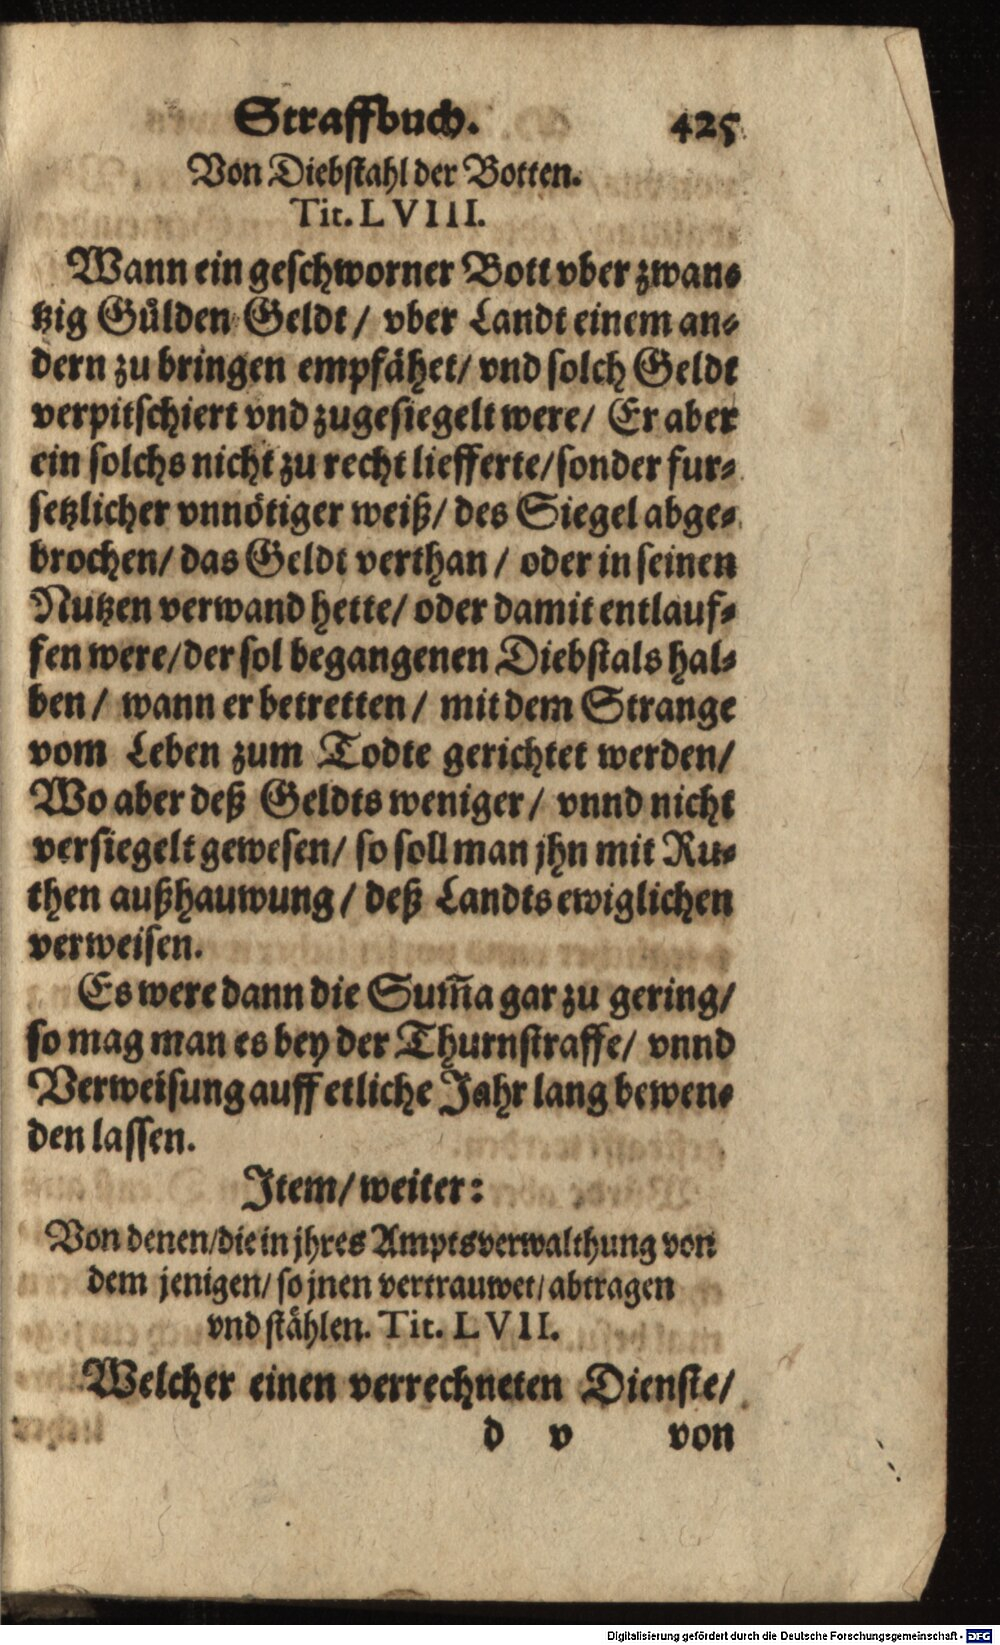 Straffbuch. 425
Von Diebstahl der Botten.
Tit. LVIII.
Wann ein geschworner Bott vber zwan⸗
tzig Gůlden Geldt / vber Landt einem an⸗
dern zu bringen empfåhet / vnd solch Geldt
verpitschiert vnd zugesiegelt were / Er aber
ein solchs nicht zu recht liefferte / sonder fur⸗
setzlicher vnnötiger weiß / des Siegel abge⸗
brochen / das Geldt verthan / oder in seinen
Nutzen verwand hette / oder damit entlauf⸗
fen were / der sol begangenen Diebstals hal⸗
ben / wann er betretten / mit dem Strange
vom Leben zum Todte gerichtet werden /
Wo aber deß Geldts weniger / vnnd nicht
versiegelt gewesen / so soll man jhn mit Ru⸗
then außhauwung / deß Landts ewiglichen
verweisen.
Es were dann die Sum̃a gar zu gering /
so mag man es bey der Thurnstraffe / vnnd
Verweisung auff etliche Jahr lang bewen⸗
den lassen.
Item / weiter:
Von denen / die in jhres Amptsverwalthung von
dem jenigen / so jnen vertrauwet / abtragen
vnd ståhlen. Tit. LVII.
Welcher einen verrechneten Dienste /
d v von
Digitalisierung gefördert durch die Deutsche Forschungsgemeinschaft - DFG